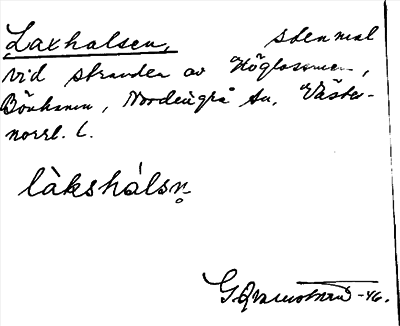 Laxhalsen, stenmal
vid stranden av Höglosmen,
Bönhamn, Nordingrå sn, Väster-
norrl. l.
làkshálsn̥
-46.